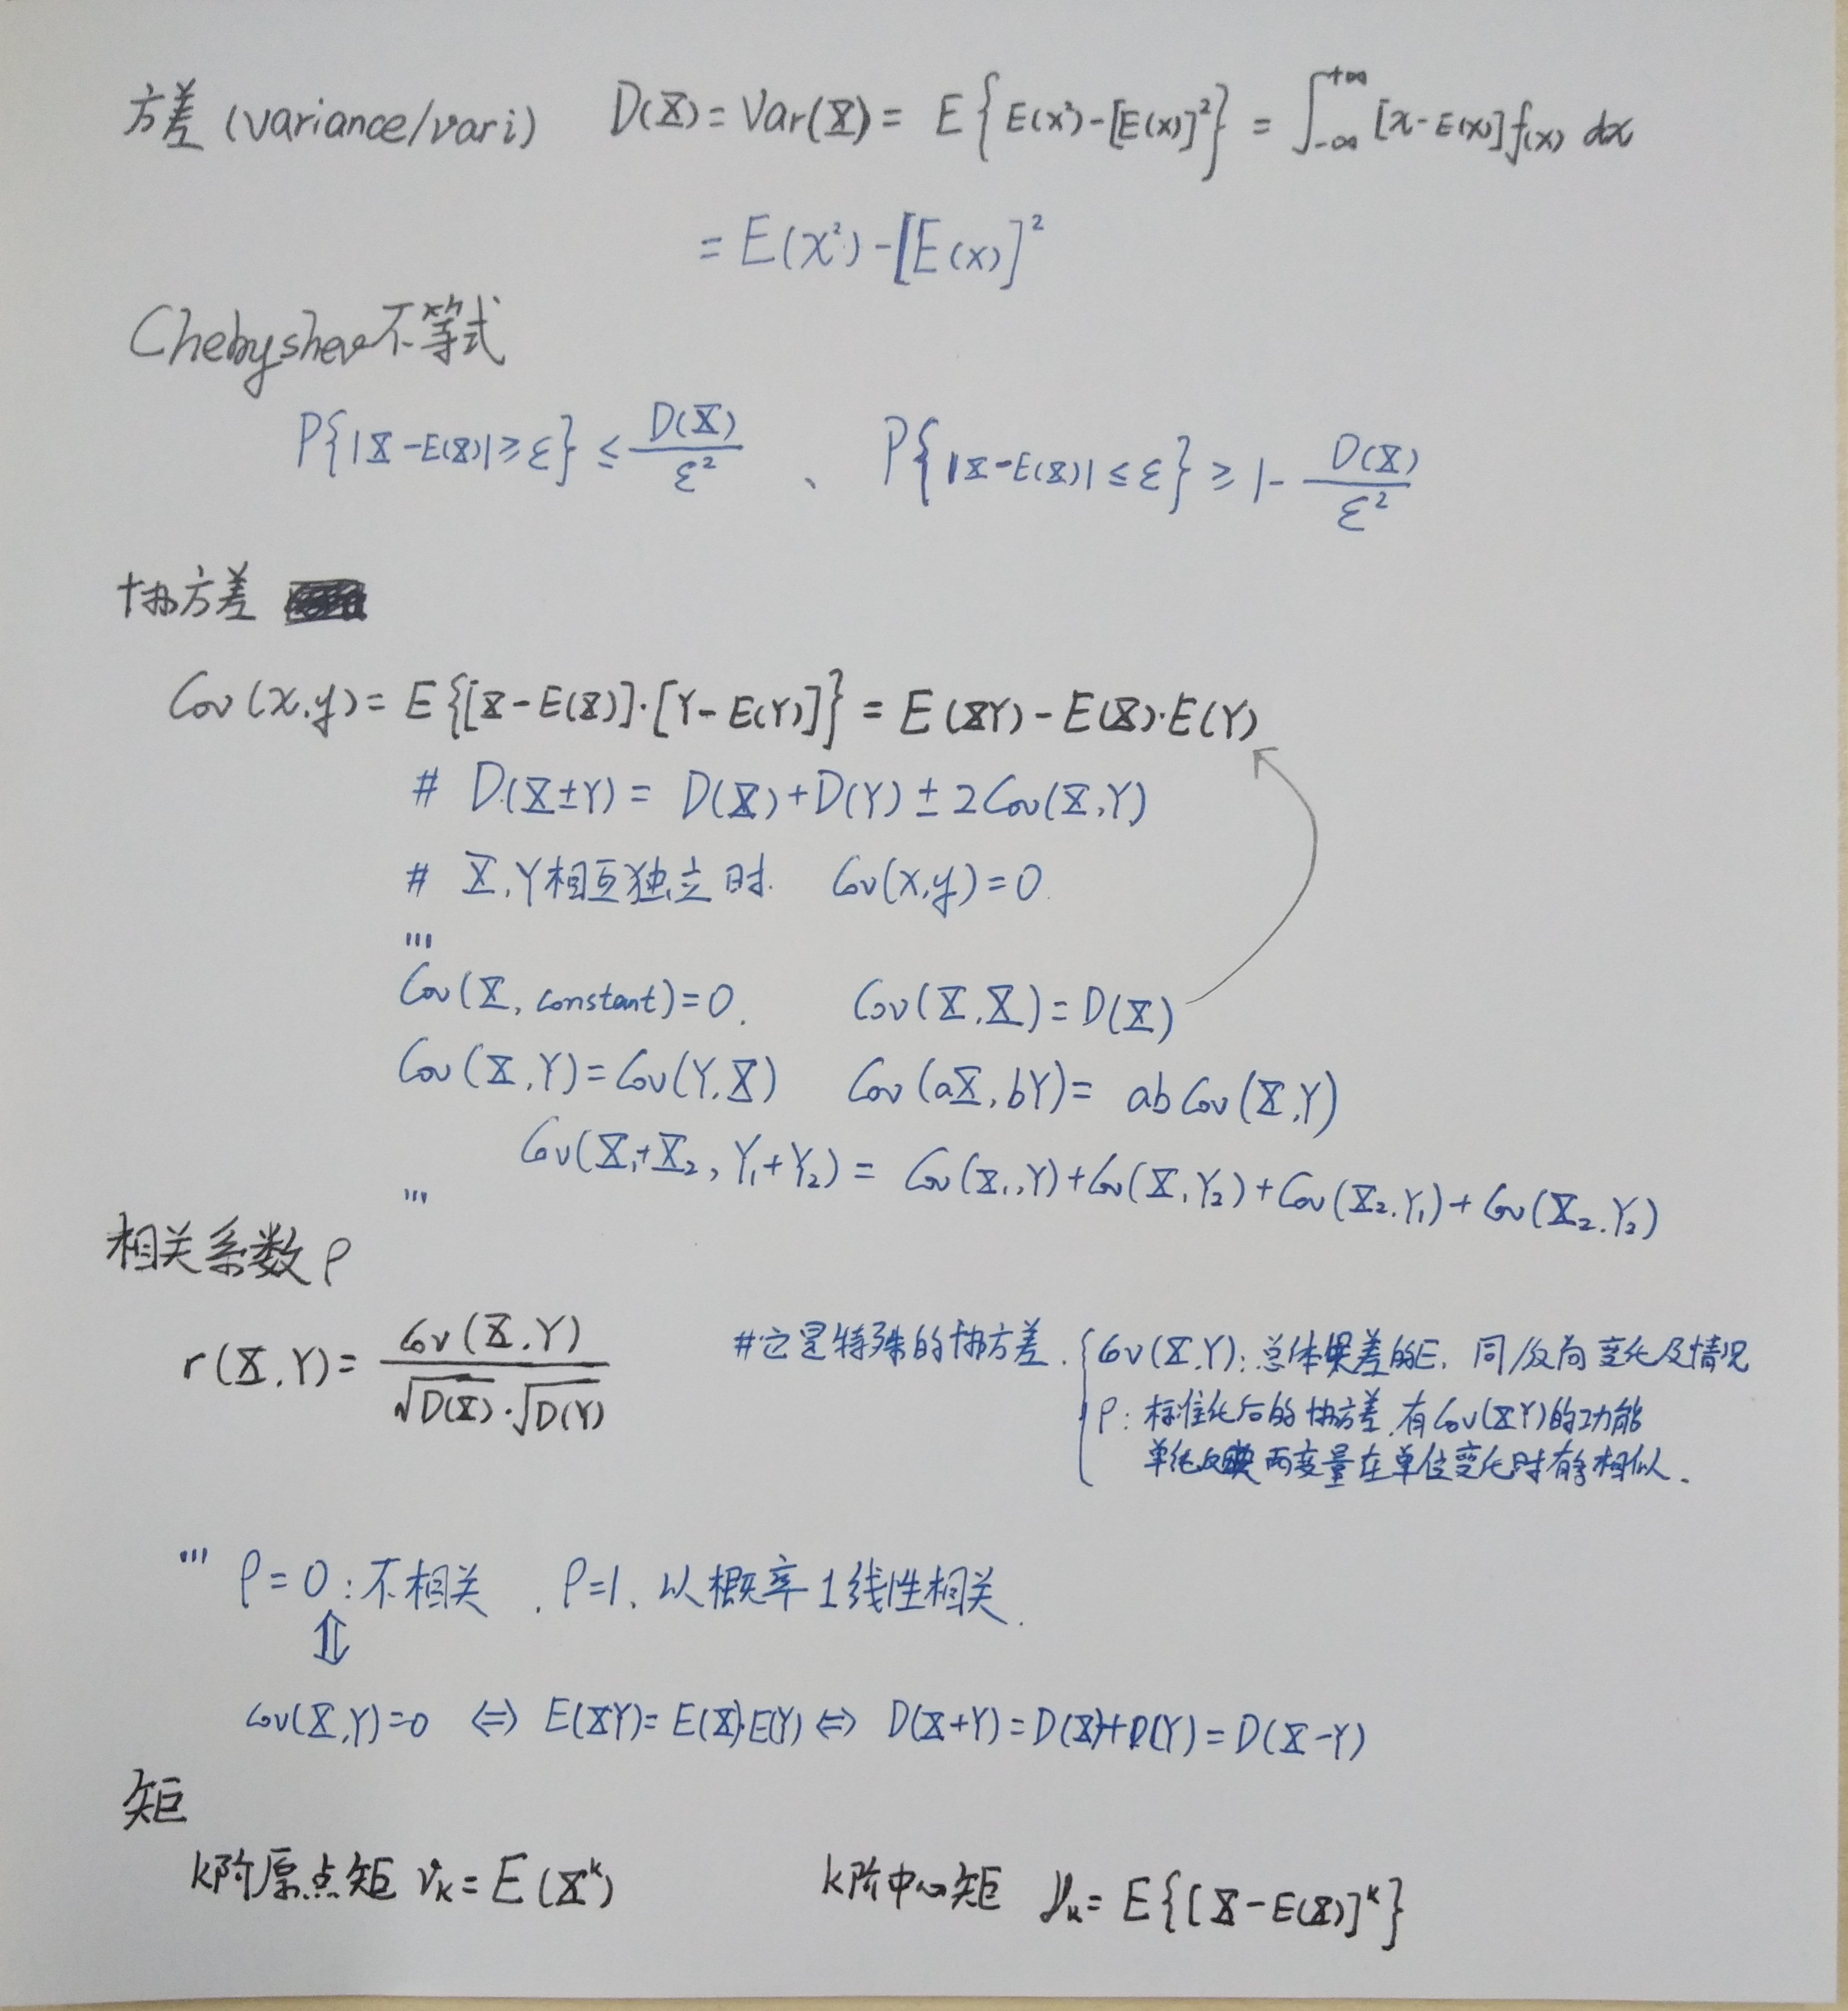 方差 (variance/vari) D(X) = Var(X) = E{E(x²)-[E(x)]²} = ∫₋∞⁺∞ [x-E(x)]f(x) dx
= E(x²)-[E(x)]²
Chebyshev不等式
P{|X-E(X)|≥ε} ≤ D(X)/ε² 、 P{|X-E(X)|≤ε} ≥ 1- D(X)/ε²
协方差
Cov(x,y) = E{[X-E(X)]·[Y-E(Y)]} = E(XY)-E(X)·E(Y)
# D(X±Y) = D(X)+D(Y)±2Cov(X,Y)
# X,Y相互独立时. Cov(x,y)=0.
'''
Cov(X, constant)=0. Cov(X,X)=D(X)
Cov(X,Y)=Cov(Y,X) Cov(aX,bY)= abCov(X,Y)
Cov(X₁+X₂, Y₁+Y₂) = Cov(X₁,Y)+Cov(X,Y₂)+Cov(X₂,Y₁)+Cov(X₂,Y₂)
'''
相关系数ρ
r(X,Y)= Cov(X,Y)/√D(X)·√D(Y)
#它是特殊的协方差. { Cov(X,Y): 总体误差的E, 同/反向变化及情况
ρ: 标准化后的协方差.有Cov(XY)的功能
单纯反映两变量在单位变化时有多相似.
''' ρ=0:不相关 . ρ=1、以概率1线性相关.
⇕
Cov(X,Y)=0 ⇔ E(XY)=E(X)·E(Y) ⇔ D(X+Y)=D(X)+D(Y)=D(X-Y)
矩
k阶原点矩 νk=E(Xᵏ) k阶中心矩 μk= E{[X-E(X)]ᵏ}